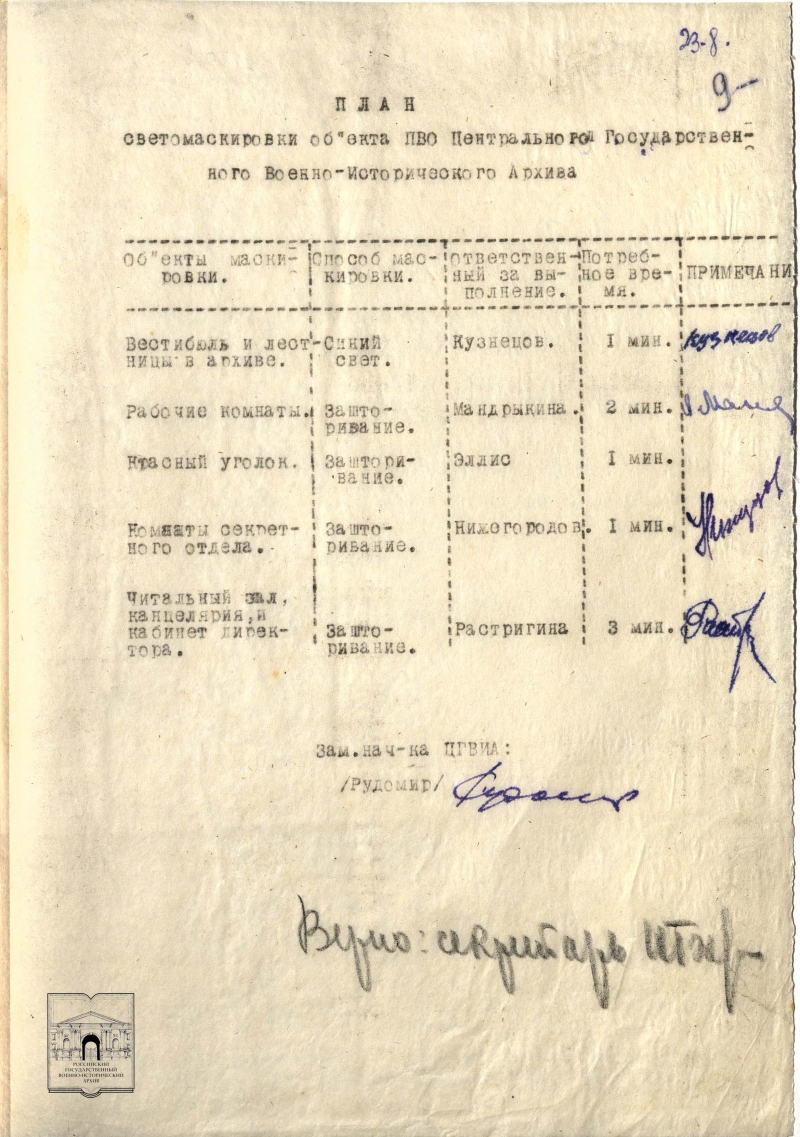 23-8.
9-
П Л А Н
светомаскировки об"екта ПВО Центрального Государствен-
ного Военно-Исторического Архива
Об"екты маски-
ровки.
Способ мас-
кировки.
ответствен-
ный за вы-
полнение.
Потреб-
ное вре-
мя.
ПРИМЕЧАНИ
Вестибюль и лест-
ницы в архиве.
Синий
свет.
Кузнецов.
1 мин.
Кузнецов
Рабочие комнаты.
Зашто-
ривание.
Мандрыкина.
2 мин.
Красный уголок.
Заштори-
вание.
Эллис
1 мин.
Комнаты секрет-
ного отдела.
Зашто-
ривание.
Нижегородов.
1 мин.
Читальный зал,
канцелярия,и
кабинет дирек-
тора.
Зашто-
ривание.
Растригина
3 мин.
Зам.нач-ка ЦГВИА:
/Рудомир/
Верно: секретарь
РОССИЙСКИЙ
ГОСУДАРСТВЕННЫЙ
ВОЕННО-ИСТОРИЧЕСКИЙ
АРХИВ